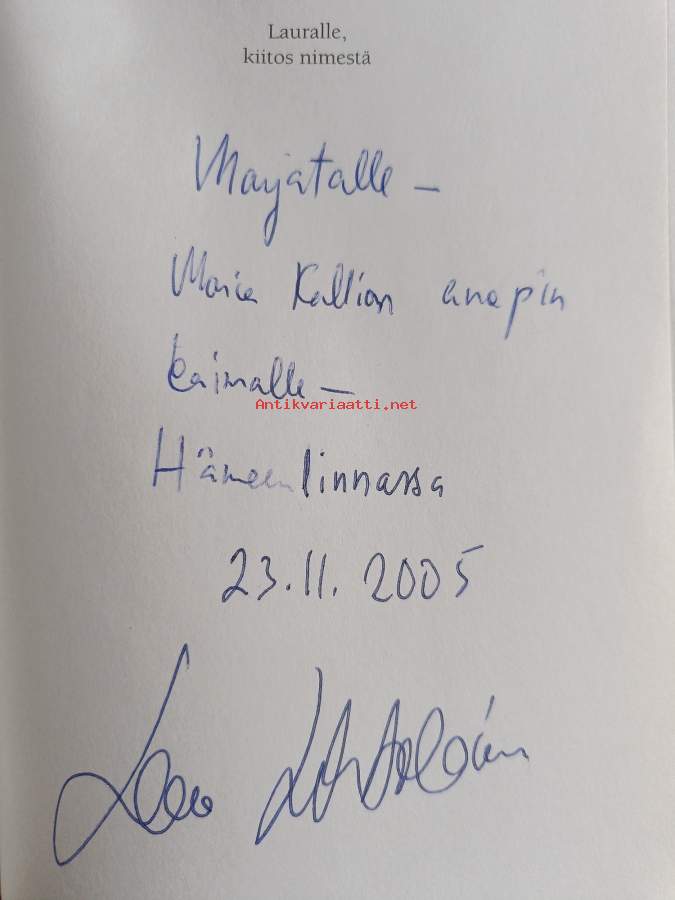 Lauralle,
kiitos nimestä
Marjatalle –
Maria Kallion anopin
kaimalle –
Antikvariaatti.net
Hämeenlinnassa
23.11.2005
Leena Lehtolainen